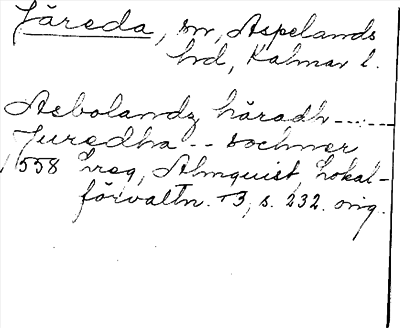 Järeda, sn, Aspelands
hd, Kalmar l.
Asbolandz häradh -----
Juredha -- sochner
1558 Lreg, Almquist, Lokal-
förvaltn. 3, s. 232. orig.